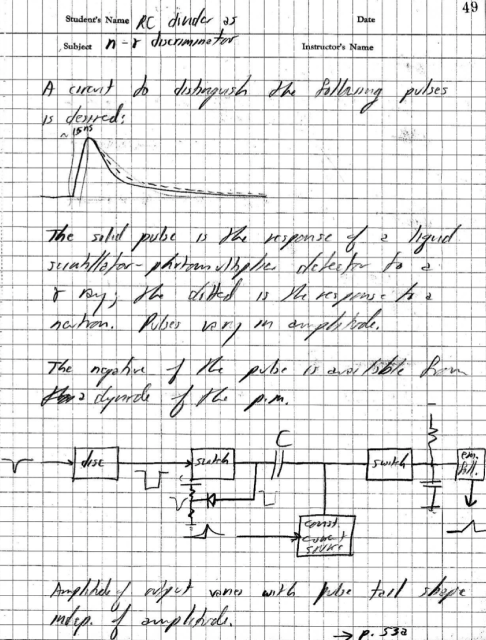 49
Student's Name RC divider as Date
Subject n-γ discriminator Instructor's Name
A circuit to distinguish the following pulses
is desired:
~15ns
The solid pulse is the response of a liquid
scintillator-photomultiplier detector to a
γ ray; the dotted is the response to a
neutron. Pulses vary in amplitude.
The negative of the pulse is available from
a dynode of the p.m.
C
disc
switch
switch
em. foll.
const.
current
source
Amplitude of output varies with pulse tail shape
indep. of amplitude.
→ p. 53a